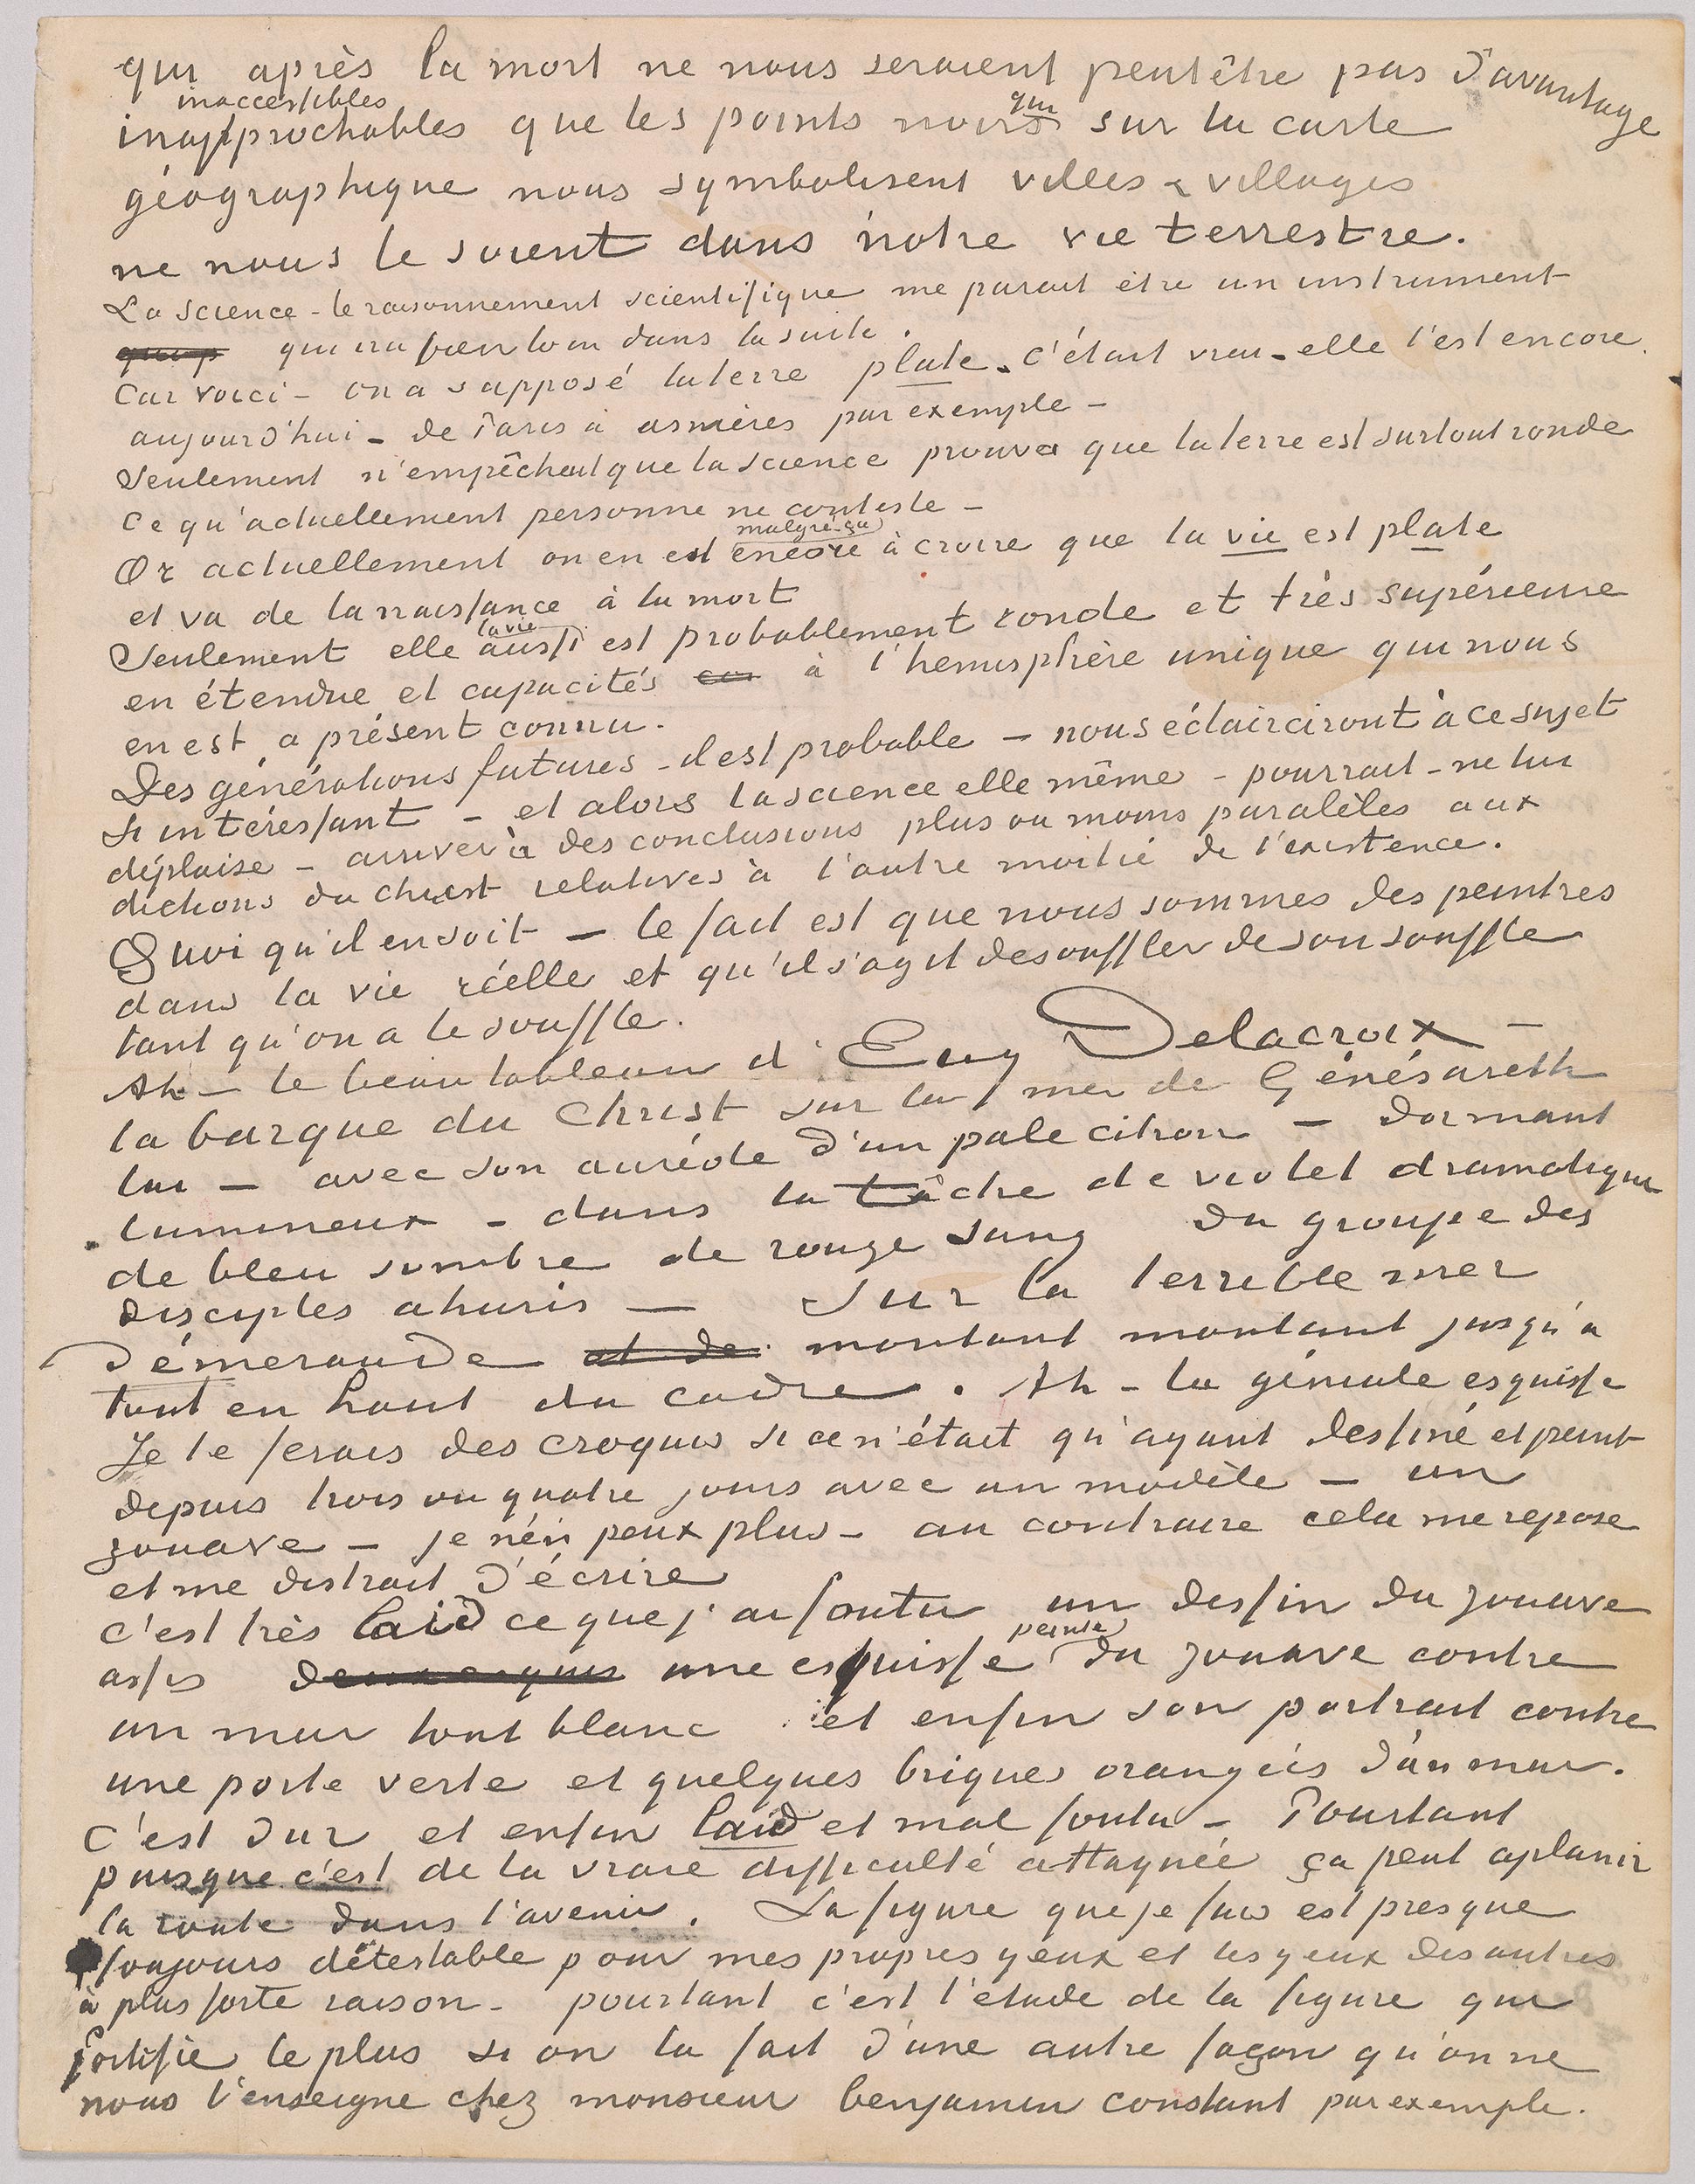 qui après la mort ne nous seraient peutêtre pas d'avantage
inaccessibles
inapprochables que les points noirs qui sur la carte
géographique nous symbolisent villes & villages
ne nous le soient dans notre vie terrestre.
La science - le raisonnement scientifique me parait être un instrument
qui ira bien loin dans la suite.
Car voici - on a supposé la terre plate. c'était vrai - elle l'est encore
aujourd'hui - de Paris à asnières par exemple -
Seulement n'empêchait que la science prouva que la terre est surtout ronde
Ce qu'actuellement personne ne conteste -
malgré ça
Or actuellement on en est encore à croire que la vie est plate
et va de la naissance à la mort
la vie
Seulement elle aussi est probablement ronde et très supérieure
en étendue et capacités à l'hemisphère unique qui nous
en est a présent connu.
Des générations futures - il est probable - nous éclairciront à ce sujet
si intéressant - et alors la science elle même - pourrait - ne lui
déplaise - arriver à des conclusions plus ou moins paralèles aux
dictions du Christ relatives à l'autre moitié de l'existence.
Quoi qu'il en soit - le fait est que nous sommes des peintres
dans la vie réelle et qu'il s'agit de souffler de son souffle
tant qu'on a le souffle.
Ah - le beau tableau d'Eug Delacroix -
la barque du Christ sur la mer de Génésareth
lui - avec son auréole d'un pale citron - dormant
lumineux - dans la tâche de violet dramatique
de bleu sombre de rouge sang du groupe des
disciples ahuris - Sur la terrible mer
d'émeraude montant montant jusqu'à
tout en haut du cadre. Ah - la géniale esquisse
Je te ferais des croquis si ce n'était qu'ayant dessiné et peint
depuis trois ou quatre jours avec un modèle - un
zouave - je n'en peux plus - au contraire cela me repose
et me distrait d'écrire
C'est très laid ce que j'ai foutu un dessin du zouave
assis une esquisse peinte du zouave contre
un mur tout blanc et enfin son portrait contre
une porte verte et quelques briques orangées d'un mur.
C'est dur et enfin laid et mal foutu - Pourtant
puisque c'est de la vraie difficulté attaquée ça peut aplanir
la route dans l'avenir. La figure que je fais est presque
toujours détestable pour mes propres yeux et les yeux des autres
à plus forte raison - pourtant c'est l'étude de la figure qui
fortifie le plus si on la fait d'une autre façon qu'on ne
nous l'enseigne chez monsieur benjamin constant par exemple.